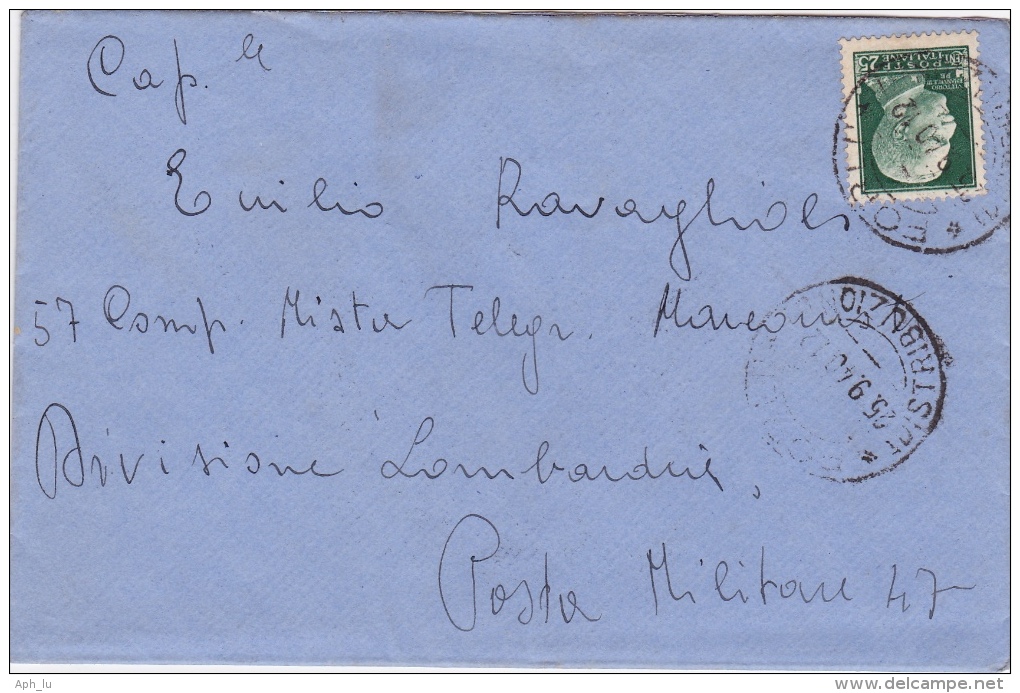 Cap. le
Emilio Ravaglioli
57 Comp. Mista Telegr. Marconi
Divisione Lombardia,
Posta Militare 47
POSTE
ITALIANE
CENT 25
VITTORIO
EMANUELE
DISTRIBUZIONE
25.9.40.12
FORLI
Aph_lu
www.delcampe.net